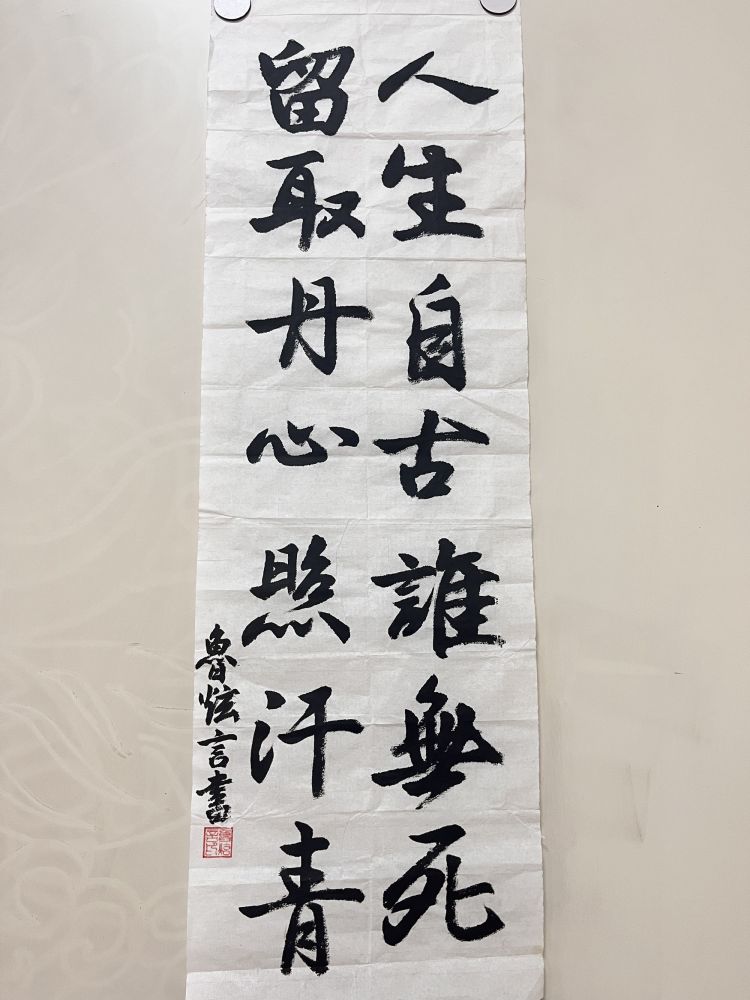 人生自古誰無死
留取丹心照汗青
魯炫言書